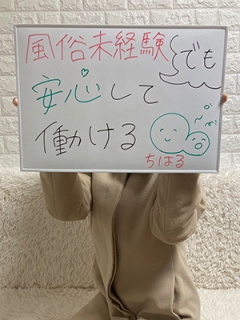 風俗未経験でも
安心して
働ける
ちはる